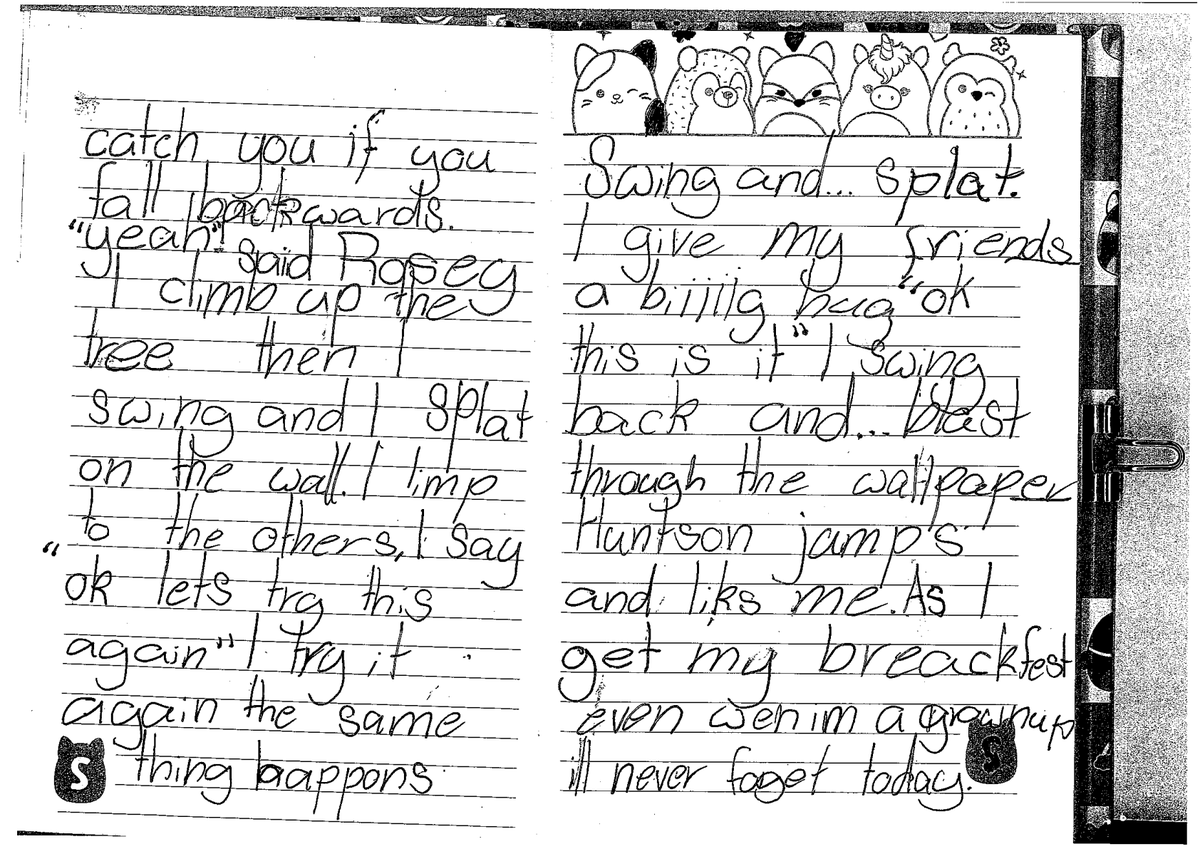 catch you if you
fall backwards.
"yeah" said Rosey
I climb up the
tree then I
swing and I splat
on the wall. I limp
to the others, I say
"ok lets try this
again" I try it
again the same
thing happons
S
Swing and... splat.
I give my friends
a biiiiig hug "ok
this is it" I swing
back and... blast
through the wallpaper
Huntson jamp's
and liks me. As I
get my breackfest
even wen im a grownup
ill never foget today.
S